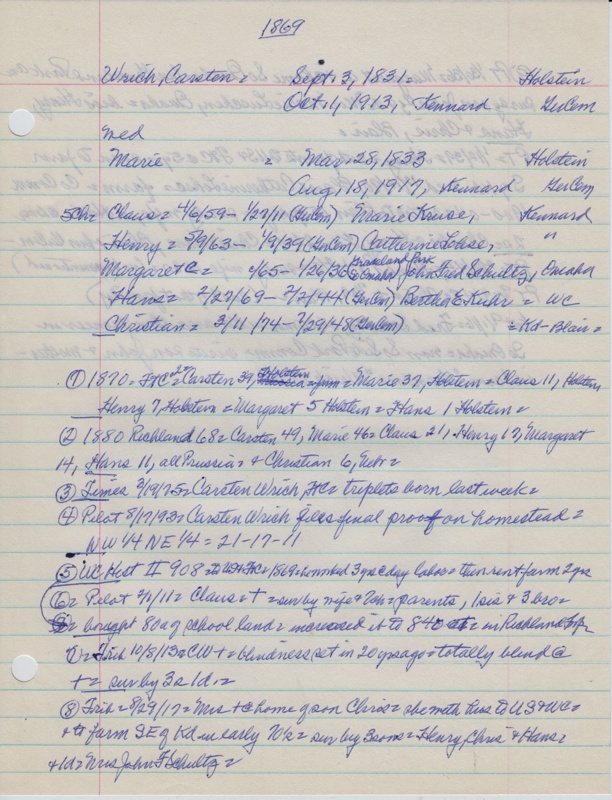 1869
Wrich, Carsten = Sept. 3, 1831 = Holstein
Oct. 1, 1913, Kennard GerCem
med
Marie = Mar. 28, 1833 Holstein
Aug. 18, 1917, Kennard GerCem
5Ch = Claus = 4/6/59 - 1/27/11 (GerCem) Marie Kruse, Kennard
Henry = 5/9/63 - 1/9/39 (GerCem) Catherine Loese, "
Graceland Park
Margaret C = /65 - 1/26/36 (Omaha) John Fred Schultz, Omaha
Hans = 2/27/69 - 7/2/44 (GerCem) Bertha E Kuhr = WC
Christian = 3/11/74 - 7/29/48 (GerCem) = Kd - Blair =
① 1870 = Carsten 39, Holstein = farm = Marie 37, Holstein = Claus 11, Holstein
Henry 7, Holstein = Margaret 5 Holstein = Hans 1 Holstein =
② 1880 Richland 68 = Carsten 49, Marie 46 = Claus 21, Henry 17, Margaret
14, Hans 11, all Prussia = + Christian 6, Nebr =
③ Times 2/19/75 = Carsten Wrich, FC = triplets born last week =
④ Pilot 8/17/93 = Carsten Wrich files final proof on homestead =
NW 1/4 NE 1/4 = 21-17-11
⑤ WC Hist II 908 = to US + FC = 1869 = worked 3 yrs day labor = then rent farm 2 yrs
⑥ = Pilot 2/1/11 = Claus = + = sur by wife + 7ch = parents, 1 sis + 3 bro =
bought 80 a of school land = increased it to 840 = in Richland Twp
7) = Trib 10/8/13 = CW + = blindness set in 20 yrs ago = totally blind @
+ = sur by 3s 1d. =
⑧ Trib = 8/29/17 = Mrs + @ home of son Chris = she with hus to US + WC =
+ to farm SE of Kd in early 70's = sur by 3 sons = Henry, Chris + Hans =
+ 1d = Mrs John F Schultz =